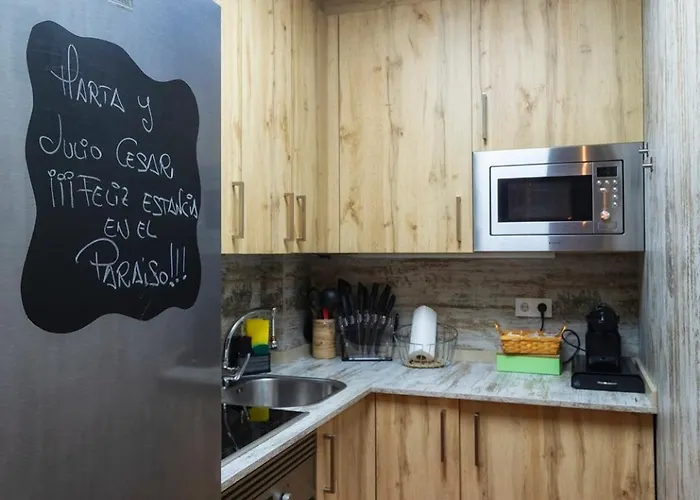 MARTA Y
JULIO CESAR,
¡¡¡FELIZ ESTANCIA
EN EL
PARAISO!!!